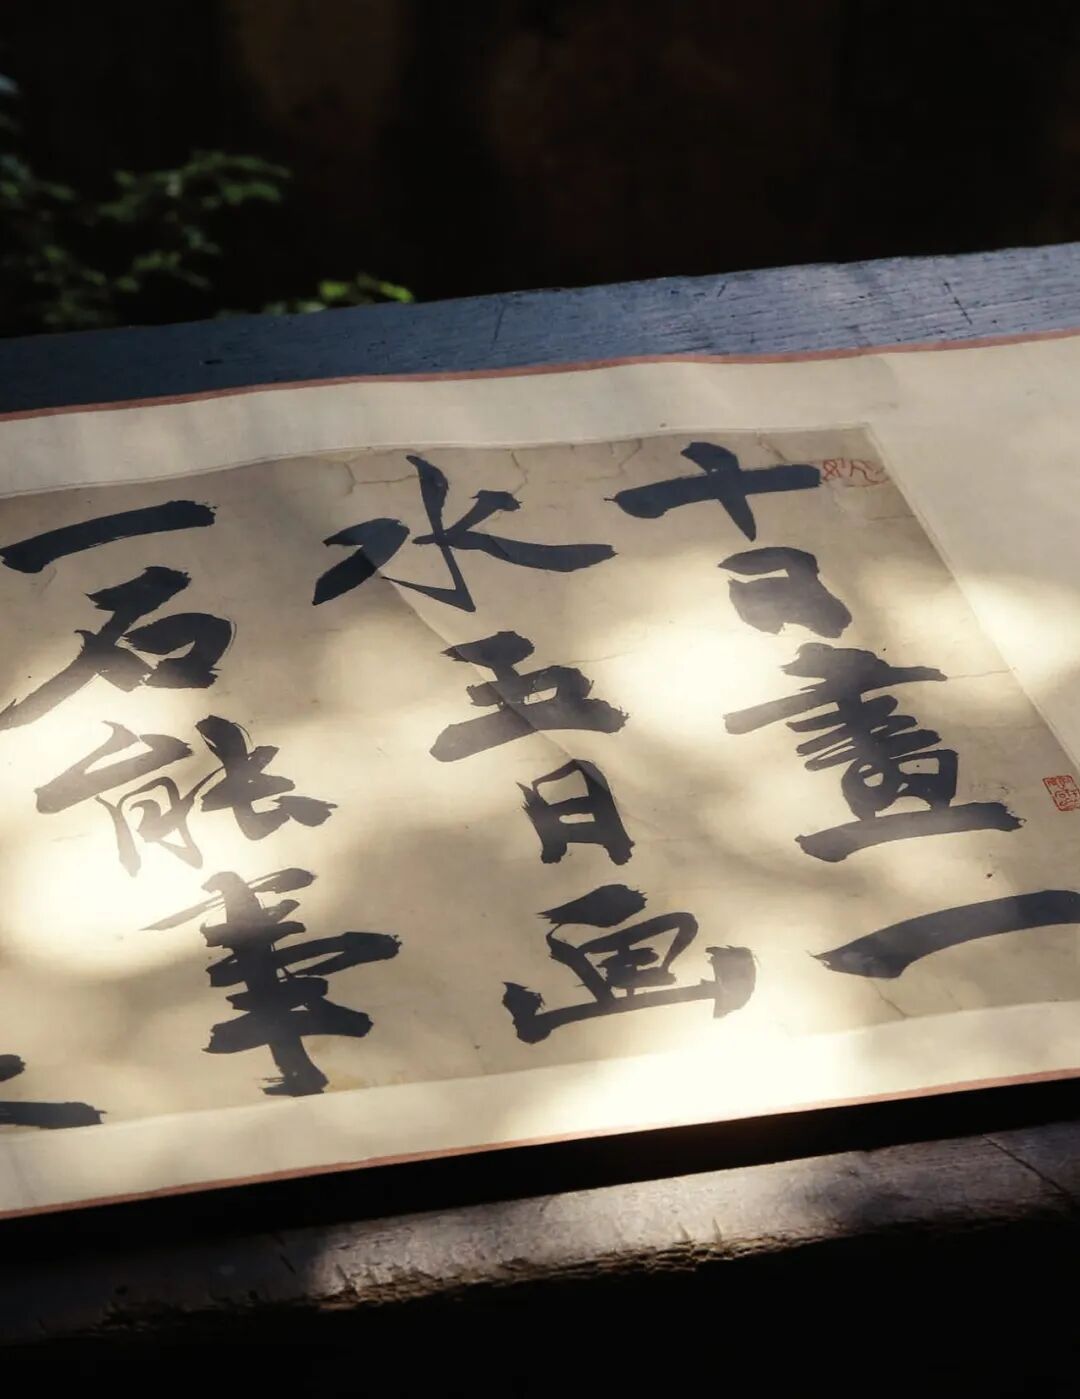 十日畫一
水五日画
一石能事